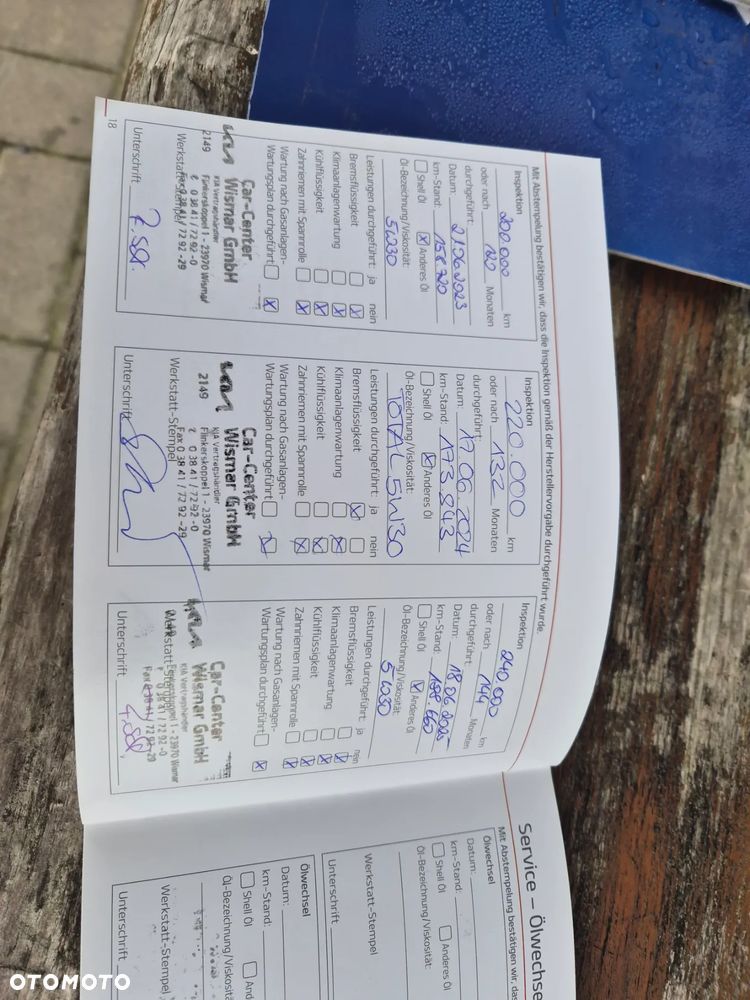 Mit Abstempelung bestätigen wir, dass die Inspektion gemäß der Herstellervorgabe durchgeführt wurde.
Inspektion
200.000 km
oder nach 120 Monaten
durchgeführt:
Datum: 21.06.2023
km-Stand: 158 720
Shell Öl Anderes Öl
Öl-Bezeichnung/Viskosität:
5W30
Leistungen durchgeführt: ja nein
Bremsflüssigkeit
Klimaanlagenwartung
Kühlflüssigkeit
Zahnriemen mit Spannrolle
Wartung nach Gasanlagen-
Wartungsplan durchgeführt
Car-Center
Wismar GmbH
KIA Vertragshändler
Flinkerskoppel 1 - 23970 Wismar
0 38 41 / 72 92 -0
Fax 0 38 41 / 72 92 -29
2149
Werkstatt-Stempel
Unterschrift
18
Inspektion
220.000 km
oder nach 132 Monaten
durchgeführt:
Datum: 17.06.2024
km-Stand: 173 843
Shell Öl Anderes Öl
Öl-Bezeichnung/Viskosität:
TOTAL 5W30
Leistungen durchgeführt: ja nein
Bremsflüssigkeit
Klimaanlagenwartung
Kühlflüssigkeit
Zahnriemen mit Spannrolle
Wartung nach Gasanlagen-
Wartungsplan durchgeführt
Car-Center
Wismar GmbH
KIA Vertragshändler
Flinkerskoppel 1 - 23970 Wismar
0 38 41 / 72 92 -0
Fax 0 38 41 / 72 92 -29
2149
Werkstatt-Stempel
Unterschrift
Inspektion
240.000 km
oder nach 144 Monaten
durchgeführt:
Datum: 18.06.2025
km-Stand:
Shell Öl Anderes Öl
Öl-Bezeichnung/Viskosität:
5W30
Leistungen durchgeführt: ja nein
Bremsflüssigkeit
Klimaanlagenwartung
Kühlflüssigkeit
Zahnriemen mit Spannrolle
Wartung nach Gasanlagen-
Wartungsplan durchgeführt
Car-Center
Wismar GmbH
KIA Vertragshändler
Flinkerskoppel 1 - 23970 Wismar
0 38 41 / 72 92 -0
Fax 0 38 41 / 72 92 -29
Werkstatt-Stempel
Unterschrift
Service – Ölwechse
Mit Abstempelung bestätigen wir, das
Ölwechsel
Datum:
km-Stand:
Shell Öl Anderes Öl
Öl-Bezeichnung/Viskosität:
Werkstatt-Stempel
Unterschrift
Ölwechsel
Datum:
km-Stand:
Shell Öl
Öl-Bezeichnung/Viskosität
Werkstatt-Stempel
Unterschrift
OTOMOTO